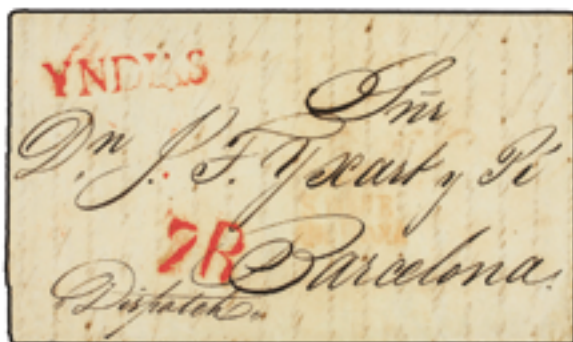 YNDIAS
Sñr
Dn. J. F. Yxart y Pi
7R
Barcelona.
Dispatch..